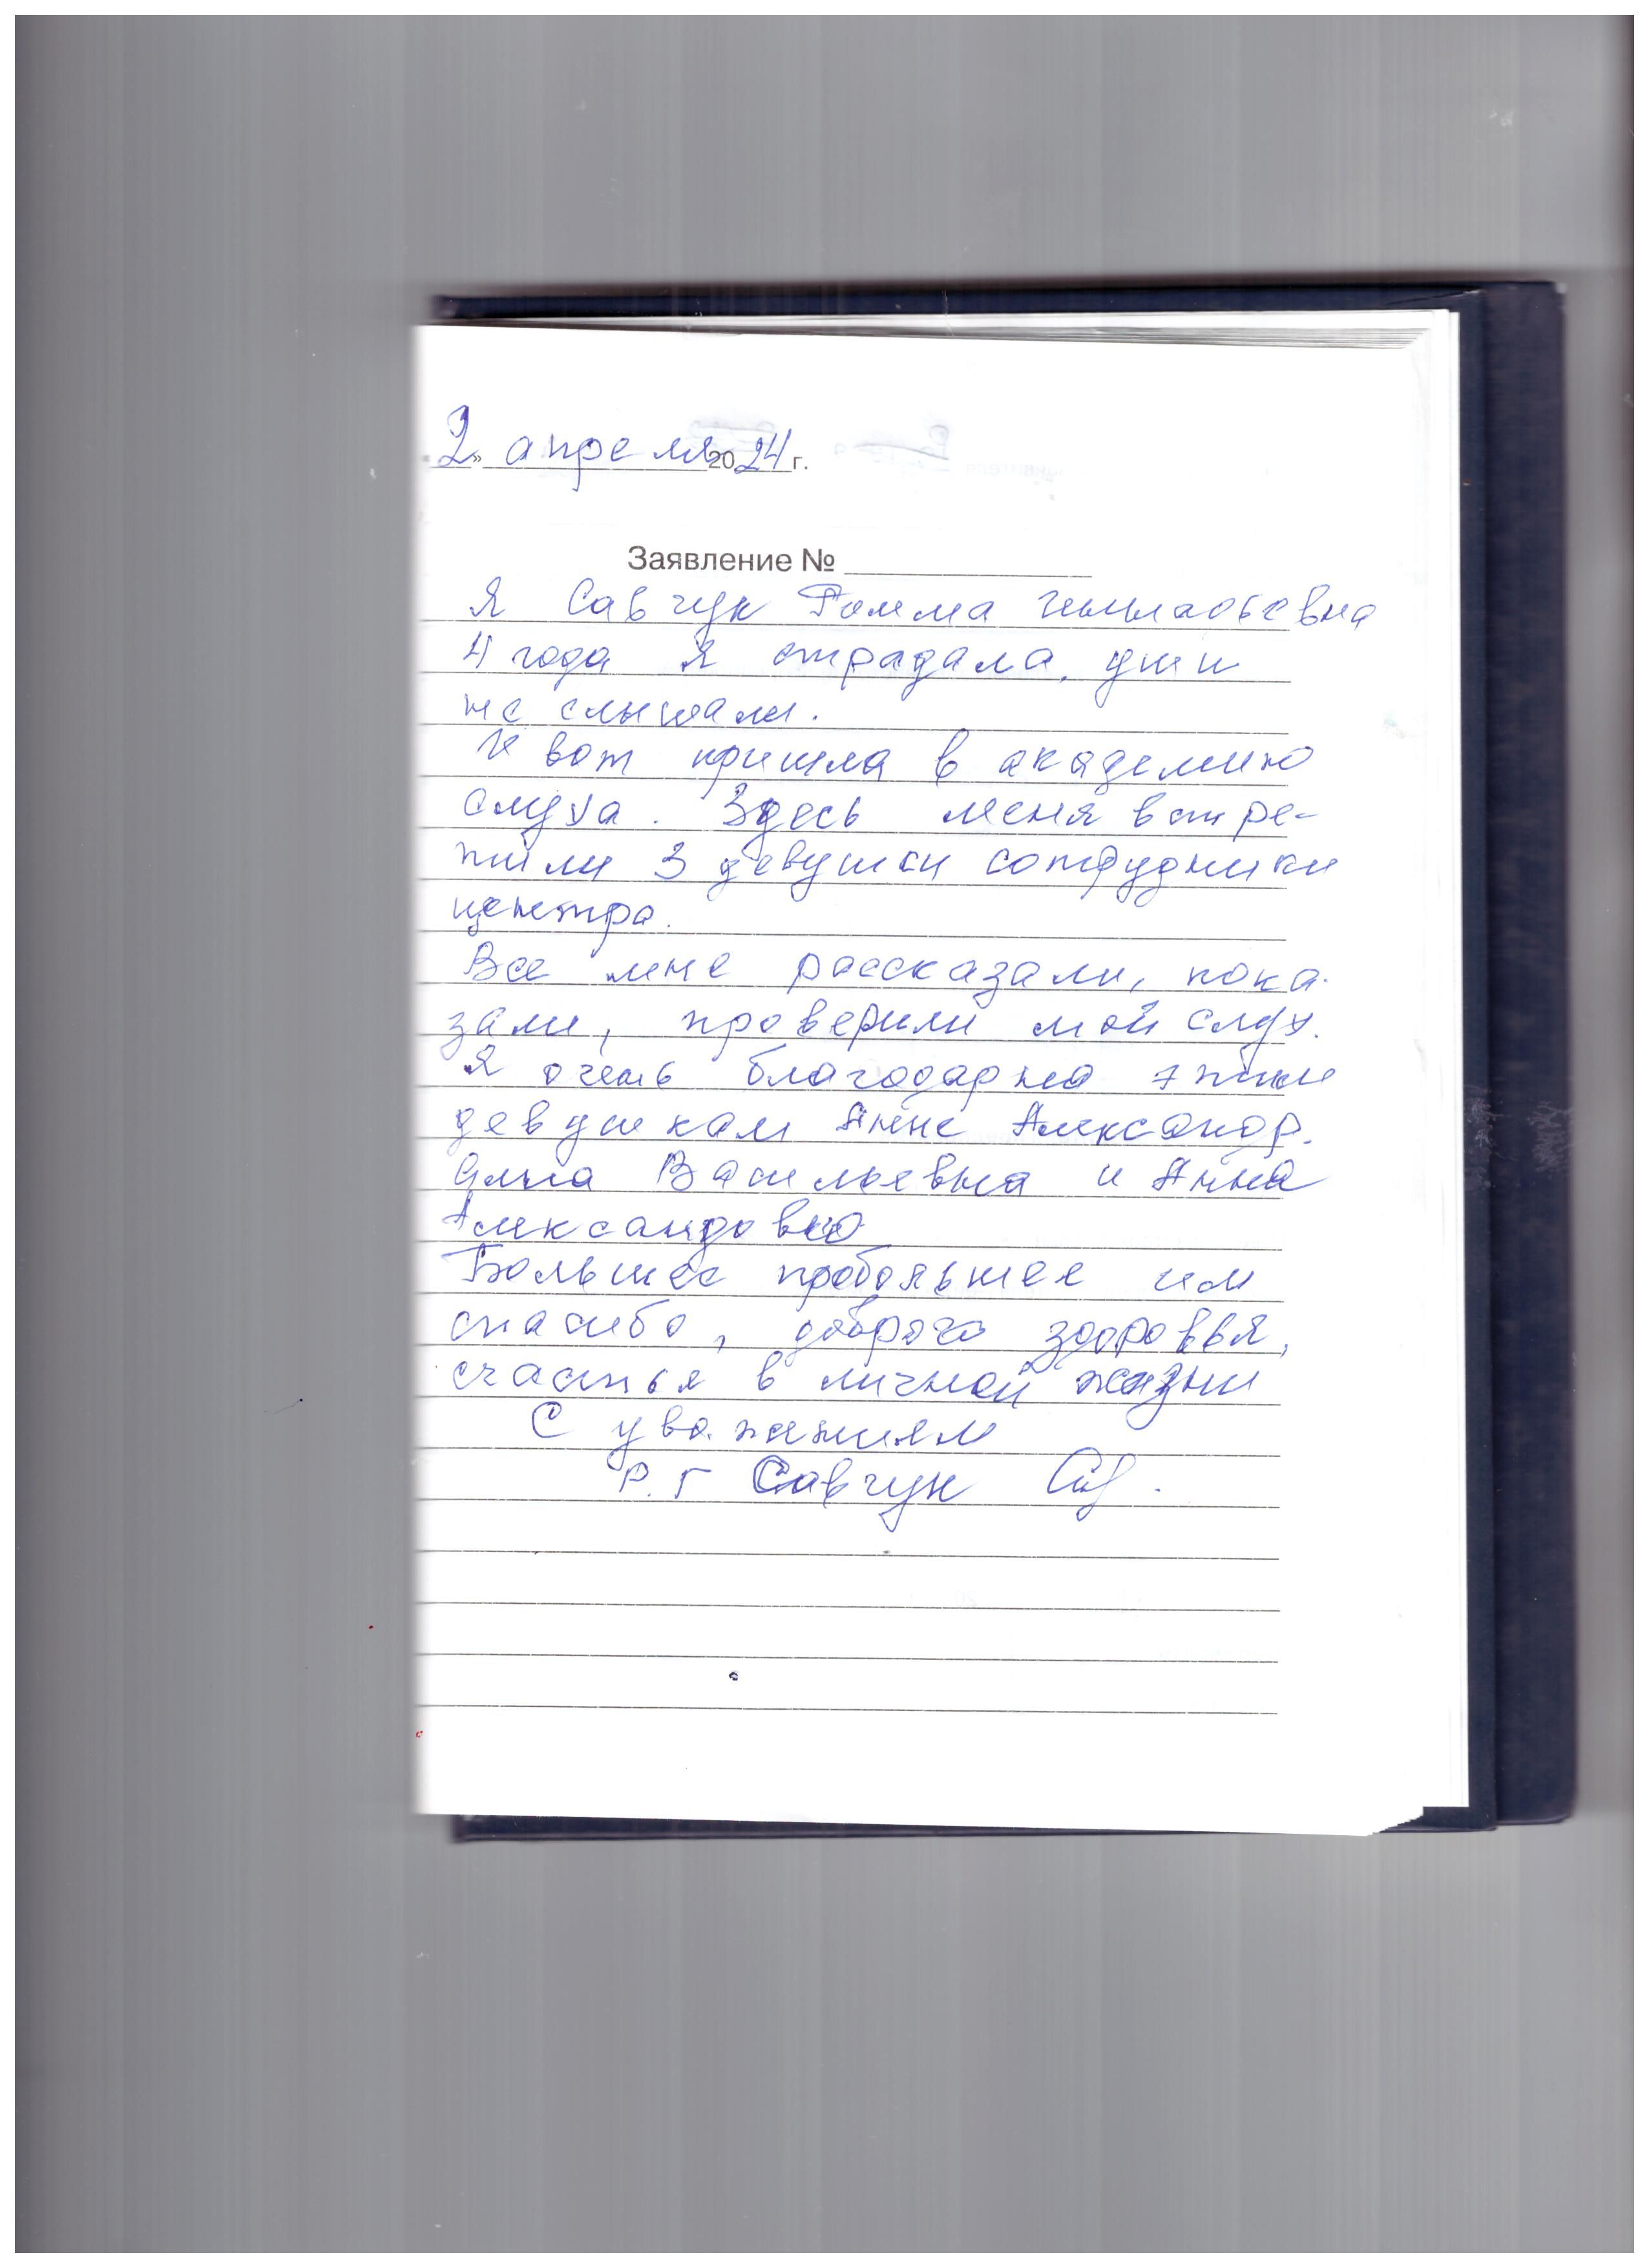 2» апреля 2024 г.
Заявление №
Я Савчук Римма
4 года я страдала, уши
не слышали.
И вот пришла в академию
слуха. Здесь меня встре-
тили 3 девушки сотрудники
центра.
Все мне рассказали, пока
зали, проверили мой слух.
Я очень благодарна этим
девушкам Анне Александр.
Васильевна и Анна
Александовна
Большее пребольшее им
спасибо, доброго здоровья,
счастья в личной жизни
С уважениям
Р. Г Савчук